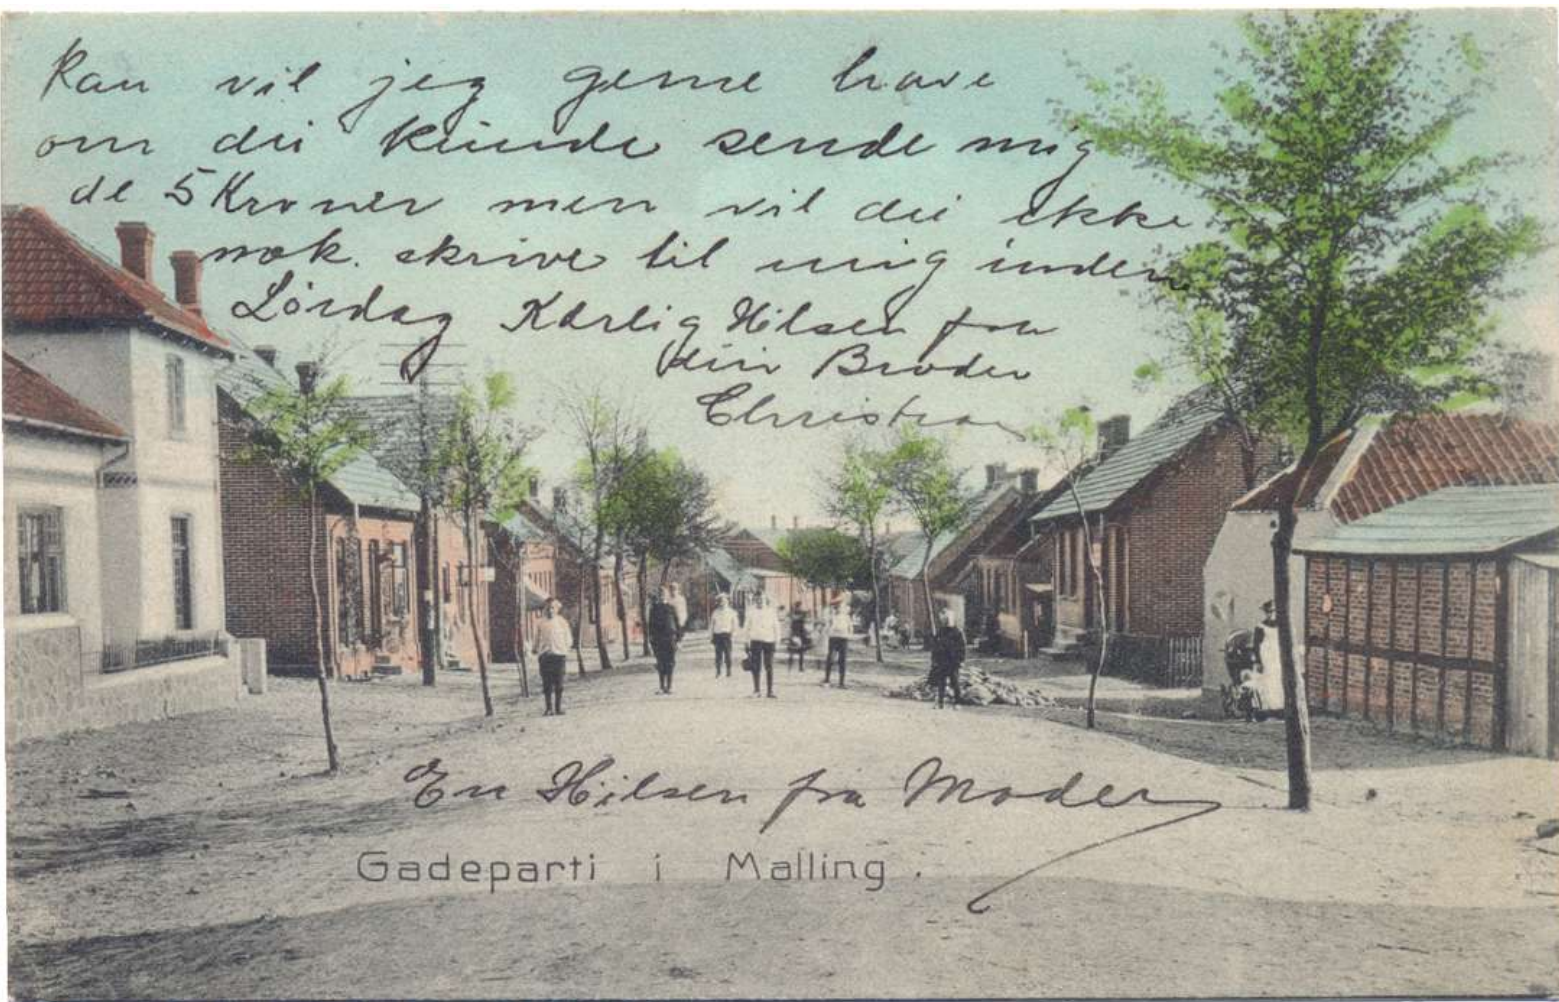 kan vil jeg gerne have
om du kunde sende mig
de 5 Kroner men vil du ikke
nok. skrive til mig inden
Lørdag Kærlig Hilsen fra
din Broder
Christian
En Hilsen fra Moder
Gadeparti i Malling.